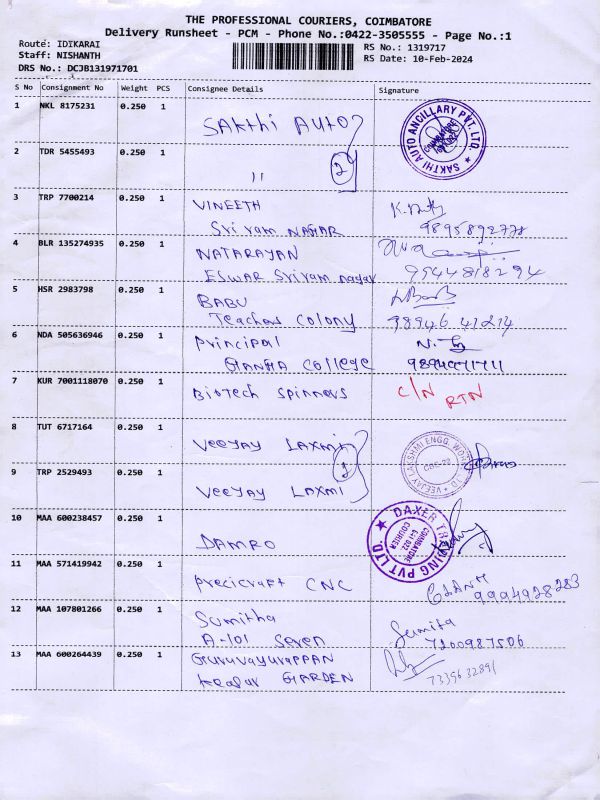 THE PROFESSIONAL COURIERS, COIMBATORE
Delivery Runsheet - PCM - Phone No.:0422-3505555 - Page No.:1
Route: IDIKARAI
RS No.: 1319717
Staff: NISHANTH
RS Date: 10-Feb-2024
DRS No.: DCJB131971701
S No Consignment No Weight PCS Consignee Details Signature
1 NKL 8175231 0.250 1
SAKthi AUTO
SAKTHI AUTO ANCILLARY PVT. LTD.
2 TDR 5455493 0.250 1
11 2
3 TRP 7700214 0.250 1 VINEETH
Sri ram NAGAR 9895892778
4 BLR 135274935 0.250 1 NATARAYAN
ESWAR Sriram nagar 9944818294
5 HSR 2983798 0.250 1 BABU
Teachers Colony 98946 41214
6 NDA 505636946 0.250 1 principal
GANGA College
7 KUR 7001118070 0.250 1 Biotech spinners C/N RTN
8 TUT 6717164 0.250 1
Veejay LAXMI
VEEJAY LAKSHMI ENGG. WORKS LTD CBE-29
9 TRP 2529493 0.250 1
Veejay LAXMI
10 MAA 600238457 0.250 1
DAMRO
DAXER TRADING PVT LTD. COIMBATORE 641 022
11 MAA 571419942 0.250 1
precicraft CNC 9994928283
12 MAA 107801266 0.250 1 Sumitha
Sumita
A-101 Seven 7200987506
13 MAA 600264439 0.250 1 Guruvayurappan
GARDEN 7339632891